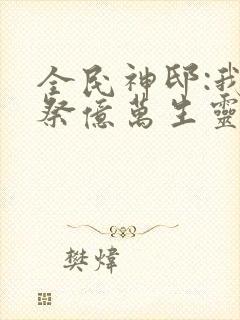 全民神邸:我
祭億萬生靈
樊煒